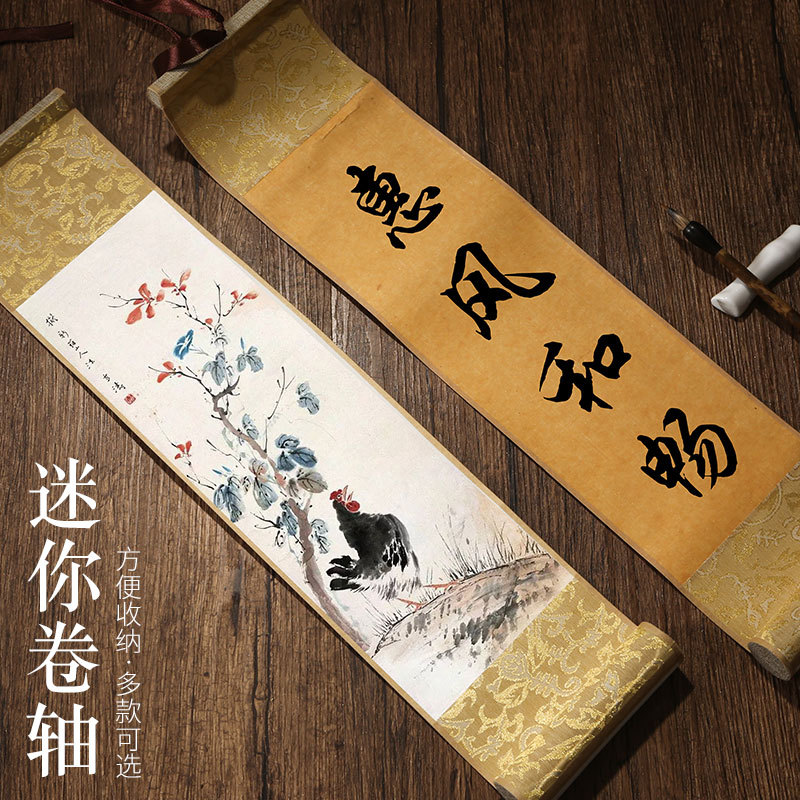 惠风和畅
迷你卷轴
方便收纳·多款可选